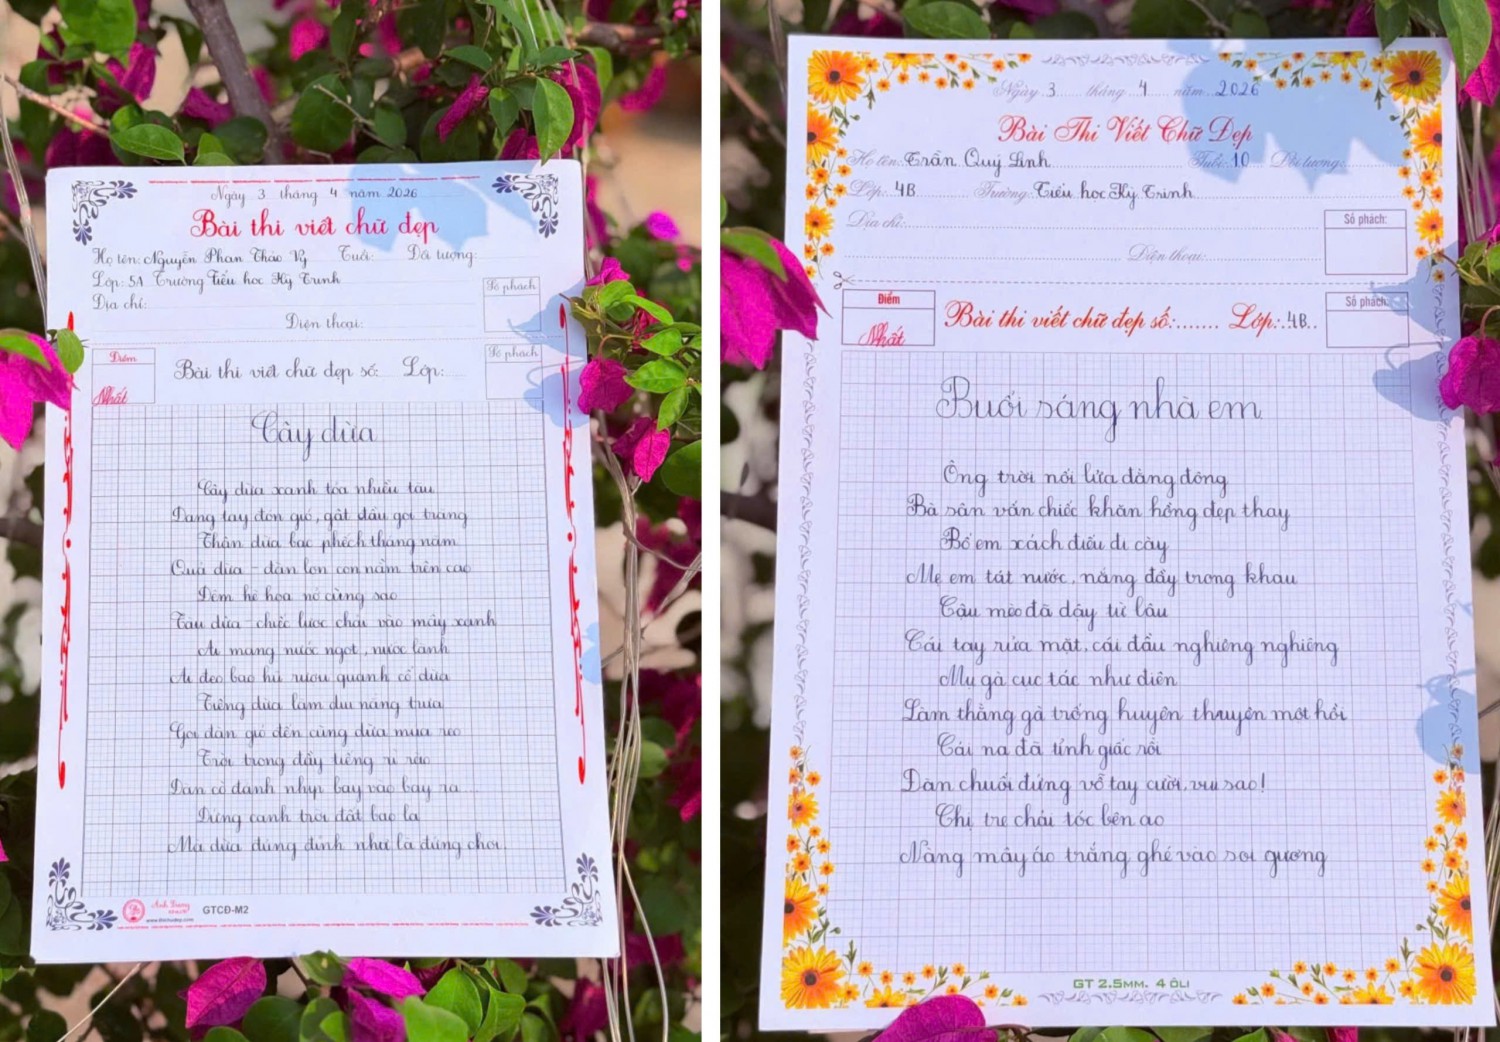 Ngày 3 tháng 4 năm 2026
Bài thi viết chữ đẹp
Họ tên: Nguyễn Phan Thảo Vy Tuổi: Đối tượng:
Lớp: 5A Trường Tiểu học Kỳ Trinh
Địa chỉ:
Điện thoại:
Số phách
Điểm
Nhất
Bài thi viết chữ đẹp số: Lớp:
Số phách
Cây dừa
Cây dừa xanh tỏa nhiều tàu
Dang tay đón gió, gật đầu gọi trăng
Thân dừa bạc phếch tháng năm
Quả dừa - đàn lợn con nằm trên cao
Đêm hè hoa nở cùng sao
Tàu dừa - chiếc lược chải vào mây xanh
Ai mang nước ngọt, nước lành
Ai đeo bao hũ rượu quanh cổ dừa
Tiếng dừa làm dịu nắng trưa
Gọi đàn gió đến cùng dừa múa reo
Trời trong đầy tiếng rì rào
Đàn cò đánh nhịp bay vào bay ra...
Đứng canh trời đất bao la
Mà dừa đủng đỉnh như là đứng chơi.
Ánh Dương
GTCĐ-M2
Ngày 3 tháng 4 năm 2026
Bài Thi Viết Chữ Đẹp
Họ tên: Trần Quý Linh Tuổi: 10 Đối tượng:
Lớp: 4B Trường: Tiểu học Kỳ Trinh
Địa chỉ:
Số phách:
Điện thoại:
Điểm
Nhất
Bài thi viết chữ đẹp số:....... Lớp: 4B..
Số phách:
Buổi sáng nhà em
Ông trời nổi lửa đằng đông
Bà sân vấn chiếc khăn hồng đẹp thay
Bố em xách điếu đi cày
Mẹ em tát nước, nắng đầy trong khau
Cậu mèo đã dậy từ lâu
Cái tay rửa mặt, cái đầu nghiêng nghiêng
Mụ gà cục tác như điên
Làm thằng gà trống huyên thuyên một hồi
Cái na đã tỉnh giấc rồi
Đàn chuối đứng vỗ tay cười, vui sao!
Chị tre chải tóc bên ao
Nàng mây áo trắng ghé vào soi gương
GT 2.5MM. 4 ÔLI